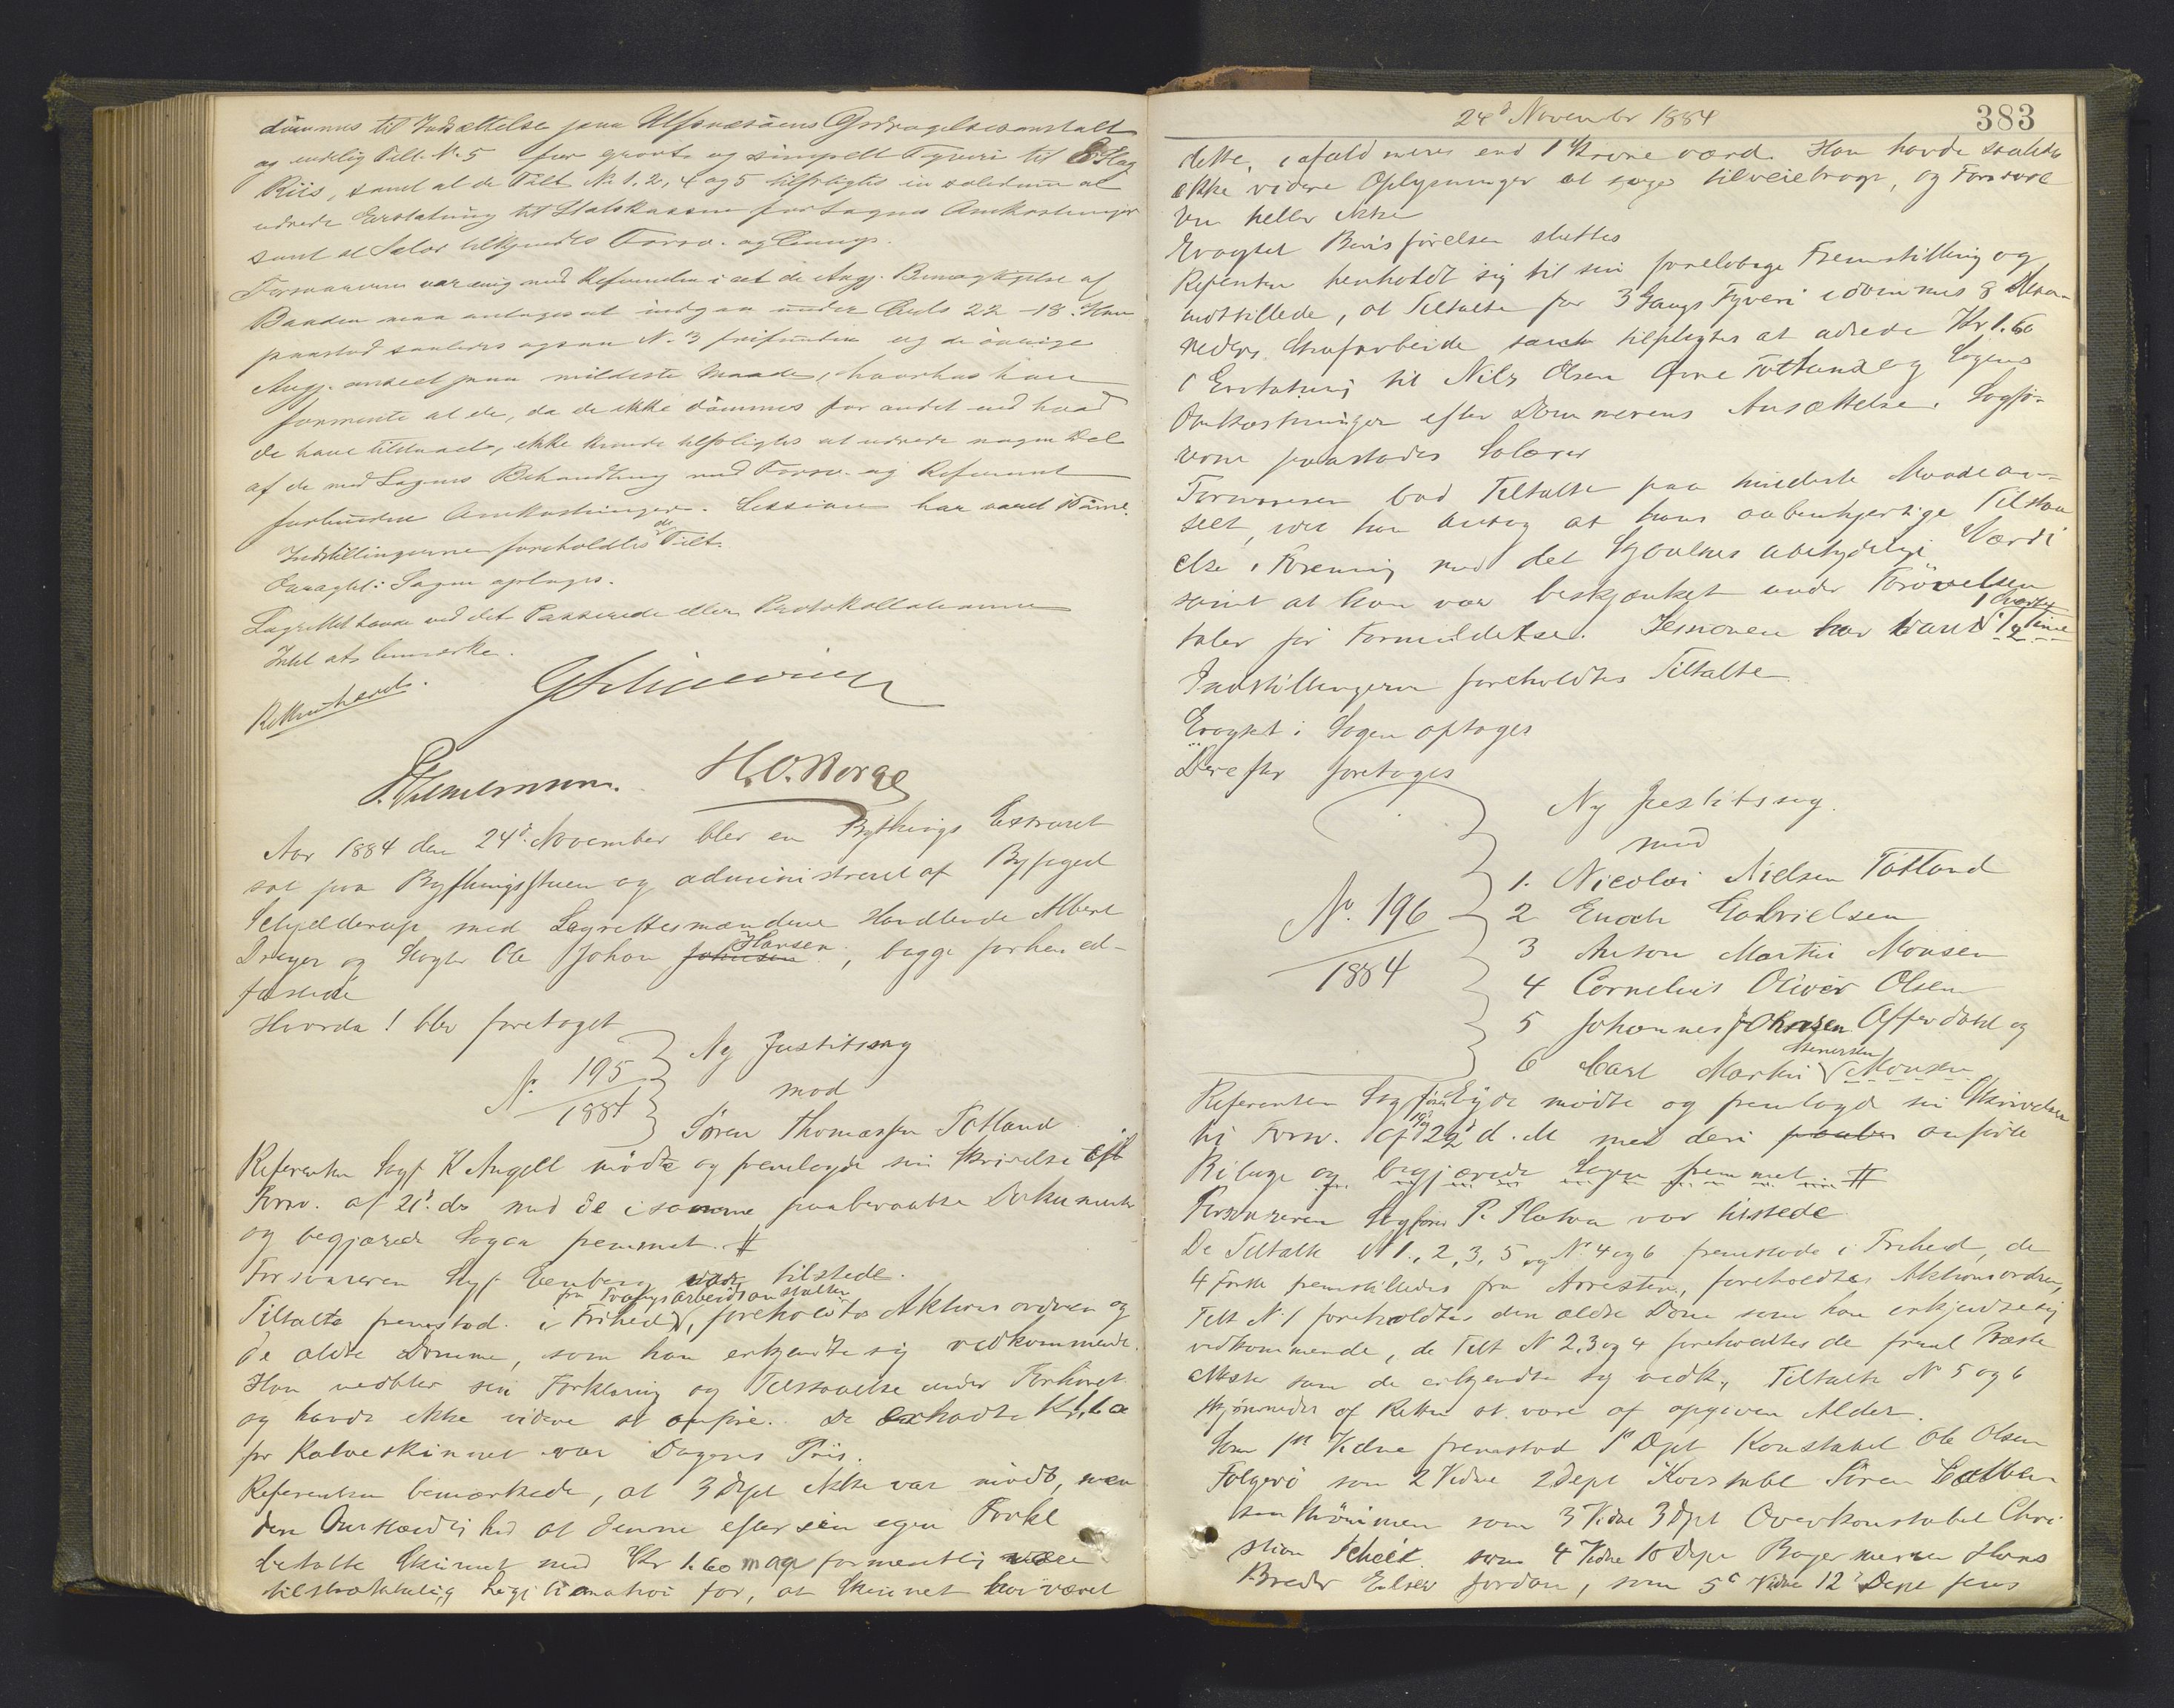 dømmes til Indsættelse paa Ulfsnæsøens Opdragelsesanstalt
og endelig Tilt. N. 5 for grovt og simpelt Tyveri til 8 Slag
Riis, samt at de Tilt. No 1, 2, 4 og 5 tilpligtes in solidum at
udrede Erstatning til Statskassen for Sagens Omkostninger
samt at Salær tilkjendes Forsv. og Actor.
Forsvareren var enig med Referenten i at de Angj. Bemægtigelse af
Baaden maa antages at indgaa under Crls 22-18. Han
paastod saaledes ogsaa N. 3 frifunden og de øvrige
Angj. anseet paa mildeste Maade, hvorhos han
formente at de, da de ikke dømmes for andet end hvad
de have tilstaaet, ikke kunde tilpligtes at udrede nogen Del
af de med Sagens Behandling med Forsv. og Referent
forbundne Omkostninger. Sessionen har varet 1 Time.
Indstillingerne foreholdtes de Tilt.
Eragtet: Sagen optages.
Lagrettet havde ved det Passerede eller Protokollationen
Intet at bemærke.
Retten hævet.
H. O. Norge
Aar 1884 den 24d November blev en Bythings Extraret
sat paa Bythingsstuen og administreret af Byfoged
Schjelderup med Lagrettesmændene Handlende Albert
Dreyer og Ole Johan Johnsen Hansen, begge forhen ed-
fæstede
Hvorda! blev foretaget
No. 195/1884 Ny Justitssag
mod
Søren Thomassen Totland
Referenten Sagf. K Angell mødte og fremlagde sin Skrivelse til
Forsv. af 21d ds med de i samme paaberaabte Dokumenter
og begjærede Sagen fremmet. #
Forsvareren Sagf. var tilstede.
Tiltalte fremstod i Frihed, fra Tvangsarbeidsanstalten foreholdtes Aktionsordren og
de ældre Domme, som han erkjendte sig vedkommende.
Han vedblev sin Forklaring og Tilstaaelse under Forhøret
og havde ikke videre at anføre. De erholdte Kr 1,60
for Kalveskinnet var Dagens Pris.
Referenten bemærkede, at 3 Dept ikke var mødt, men
den Omstændighed at denne efter sin egen Forkl.
betalte Skinnet med Kr 1.60 maa formentlig være
tilstrækkelig Legitimation for, at Skinnet har været
24d November 1884
383
dette, i afald mere end 1 Krone værd. Han havde saaledes
ikke videre Oplysninger at søge tilveiebragt, og Forsvare
ren heller ikke
Eragtet Bevisførelsen sluttes
Referenten henholdt sig til sin foreløbige Fremstilling og
indstillede, at Tiltalte for 3 Gangs Tyveri idømmes 8 Maa-
neders Strafarbeide samt tilpligtes at udrede Kr 1.60
i Erstatning til Nils Olsen Totland og Sagens
Omkostninger efter Dommerens Ansættelse. Sagfø-
rerne paastodes Salærer
Forsvareren bad Tiltalte paa mildeste Maade an-
seet, idet han antog at hans aabenhjertige Tilstaa
else i Forening med det Stjaalnes ubetydelige Værdi
samt at han var beskjænket under Forøvelsen
taler for Formildelse. Sessionen har varet 1/2 Time
Indstillingerne foreholdtes Tiltalte
Eragtet: Sagen optages
Derefter foretages
Ny Justitssag
mod
No. 196/1884
1. Nicolai Nielsen Totland
2 Enoch Gabrielsen
3 Anton Martin Monsen
4 Cornelius Oliver Olsen
5 Johannes Johnsen Offerdahl og
6 Carl Martin Monsen
Referenten Sagfører mødte og fremlagde sin Skrivelse
til Forsv. af 22d d. M med deri anførte
Bilage og begjærede Sagen fremmet #
Forsvareren Sagfører P. Platou var tilstede
De Tiltalte N 1, 2, 3, 5 og No 4 og 6 fremstode i Frihed, de
4 første fremstilledes fra Arresten, foreholdtes Aktionsordren,
Tilt N 1 foreholdtes den ældre Dom som han erkjendte sig
vedkommende, de Tilt N 2, 3 og 4 foreholdtes de fremlagte Præste
attester som de erkjendte sig vedk., Tiltalte No 5 og 6
skjønnedes af Retten at være af opgiven Alder.
Som 1st Vidne fremstod 1st Dpt Konstabel Ole Olsen
Folgerø som 2 Vidne 2 Dept Konstabel Søren
som 3 Vidne 3 Dpt Overkonstabel Chri-
stian Scheel som 4 Vidne 10 Dept Bagermester Hans
Breder Jordan, som 5d Vidne 12d Dept Jens